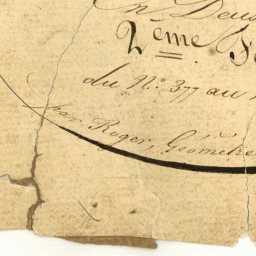 en Deux
2ème Fe
du No. 377 au
par Roger, Géomètre